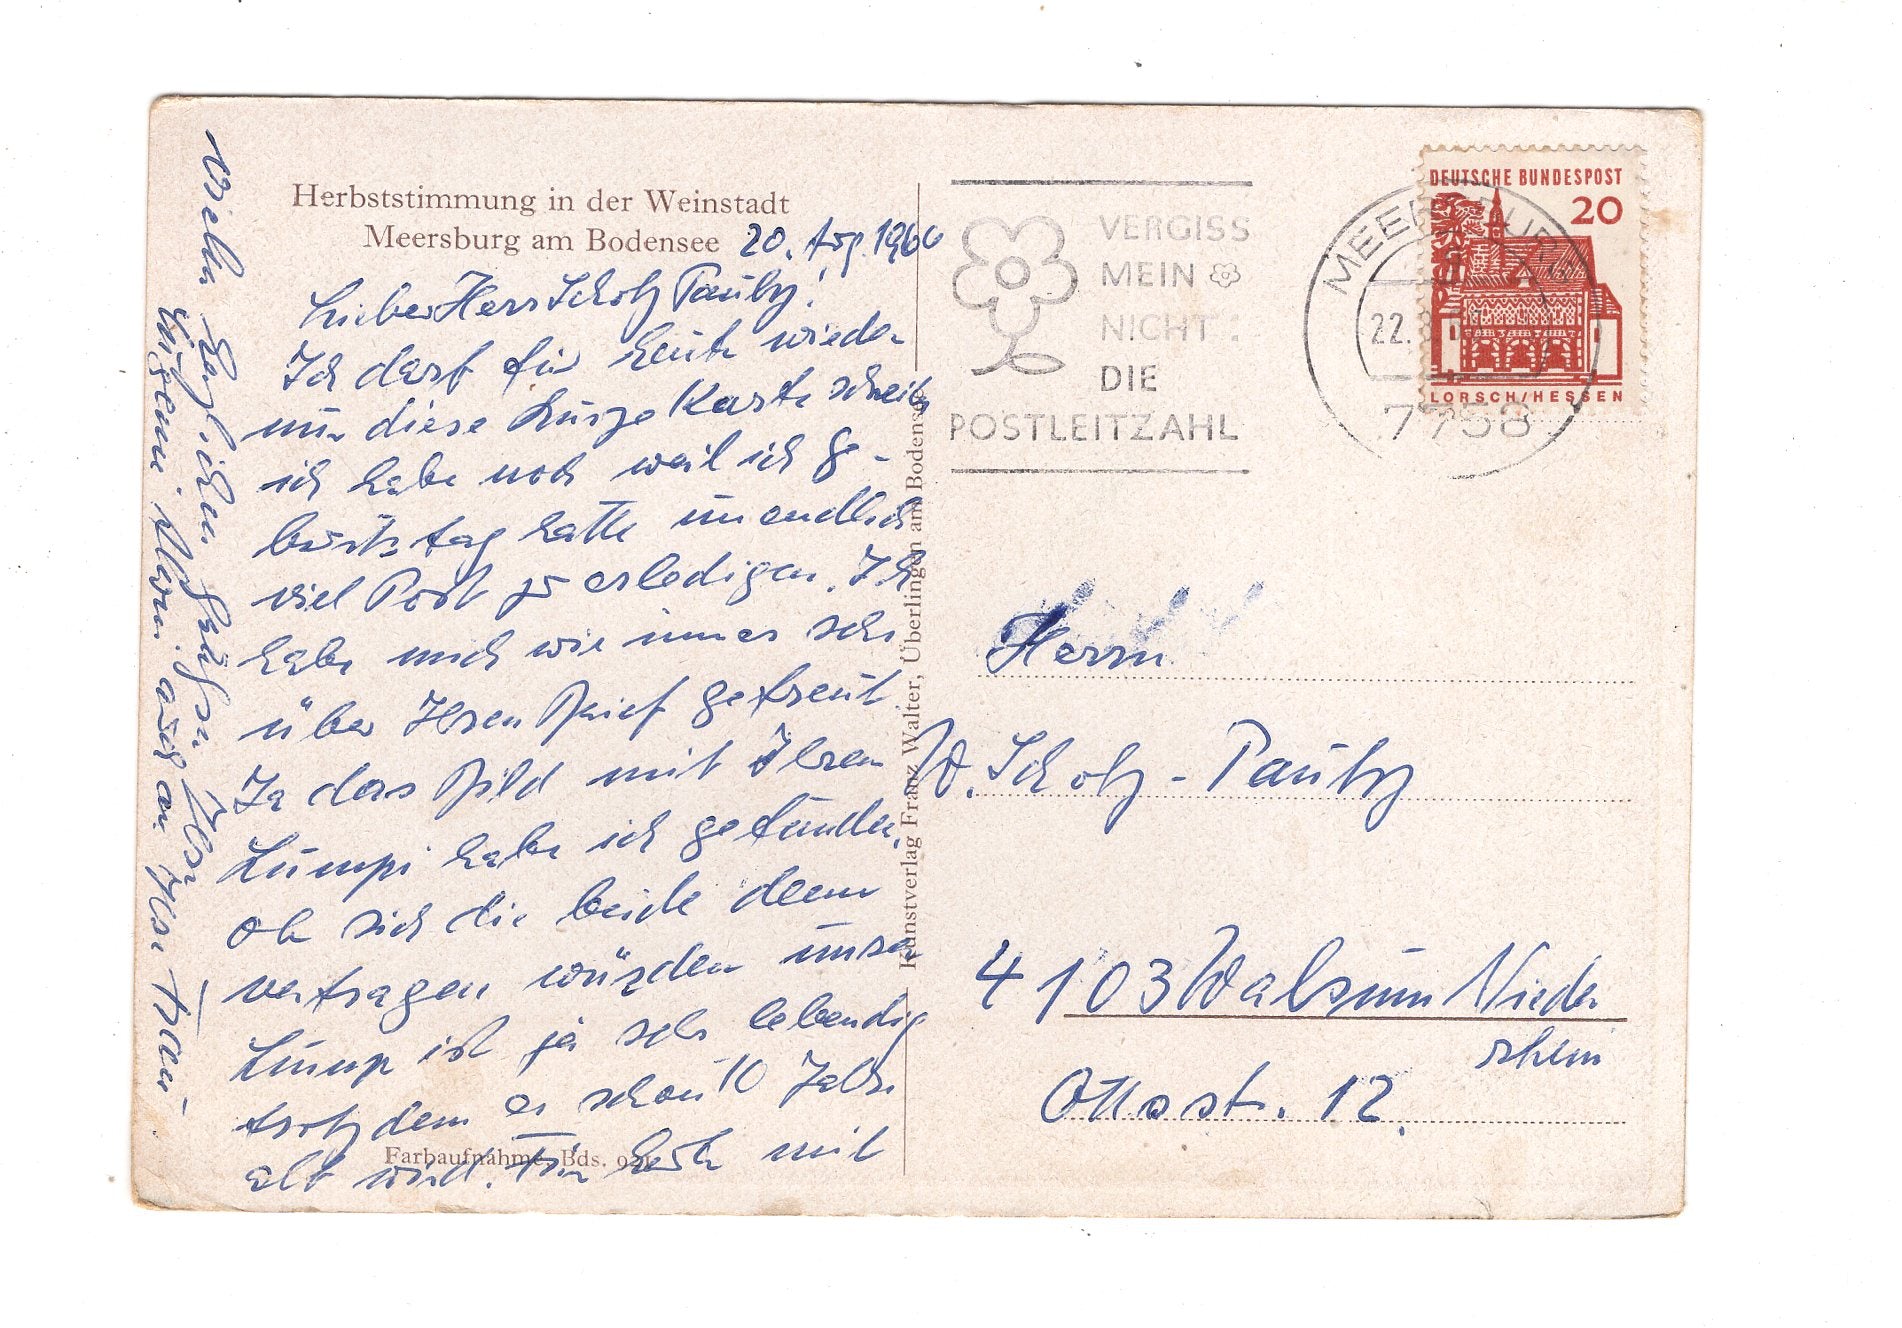 Herbststimmung in der Weinstadt
Meersburg am Bodensee
20. Aug. 1966
Lieber Herr Scholz Pauly!
Ich darf für heute wieder
nur diese kurze Karte schreib
ich habe noch weil ich Ge-
burtstag hatte unendlich
viel Post zu erledigen. Ich
habe mich wie immer sehr
über Ihren Brief gefreut.
Ja das Bild mit Ihrem
Lumpi habe ich gefunden,
ob sich die beide denn
vertragen würden unser
Lump ist ja sehr lebendig
trotzdem er schon 10 Jahre
alt wird. Für heute mit
vielen herzlichen Grüßen Ihre
Eugenie auch an Ihre Frau
Farbaufnahme, Bds. 921
Kunstverlag Franz Walter, Überlingen am Bodensee
VERGISS
MEIN
NICHT:
DIE
POSTLEITZAHL
MEERSBURG
22.
7758
DEUTSCHE BUNDESPOST
20
LORSCH/HESSEN
Herrn
W. Scholz-Pauly
4103 Walsum Nieder
rhein
Ottostr. 12.